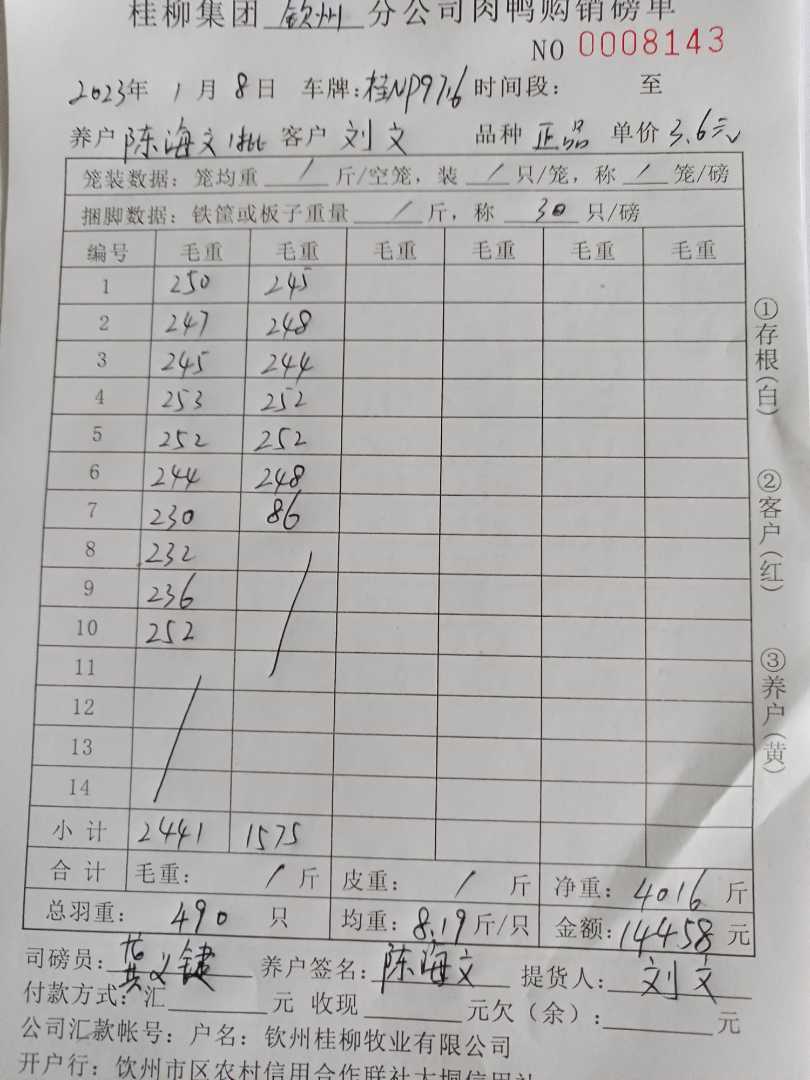 桂柳集团 钦州 分公司肉鸭购销磅单
NO 0008143
2023年 1月8日 车牌:桂NP9716 时间段: 至
养户 陈海文1批 客户 刘文 品种 正品 单价 3.6元
笼装数据: 笼均重 / 斤/空笼, 装 / 只/笼, 称 / 笼/磅
捆脚数据: 铁筐或板子重量 / 斤, 称 30 只/磅
编号 毛重 毛重 毛重 毛重 毛重 毛重
1 250 245
2 247 248
3 245 244
4 253 252
5 252 252
6 244 248
7 230 86
8 232
9 236
10 252
11
12
13
14
小计 2441 1575
合计 毛重: / 斤 皮重: / 斤 净重: 4016 斤
总羽重: 490 只 均重: 8.19斤/只 金额: 14458 元
司磅员: 养户签名: 陈海文 提货人: 刘文
付款方式: 汇 元 收现 元欠(余): 元
公司汇款帐号: 户名: 钦州桂柳牧业有限公司
开户行: 钦州市区农村信用合作联社大垌信用社
①存根(白)
②客户(红)
③养户(黄)